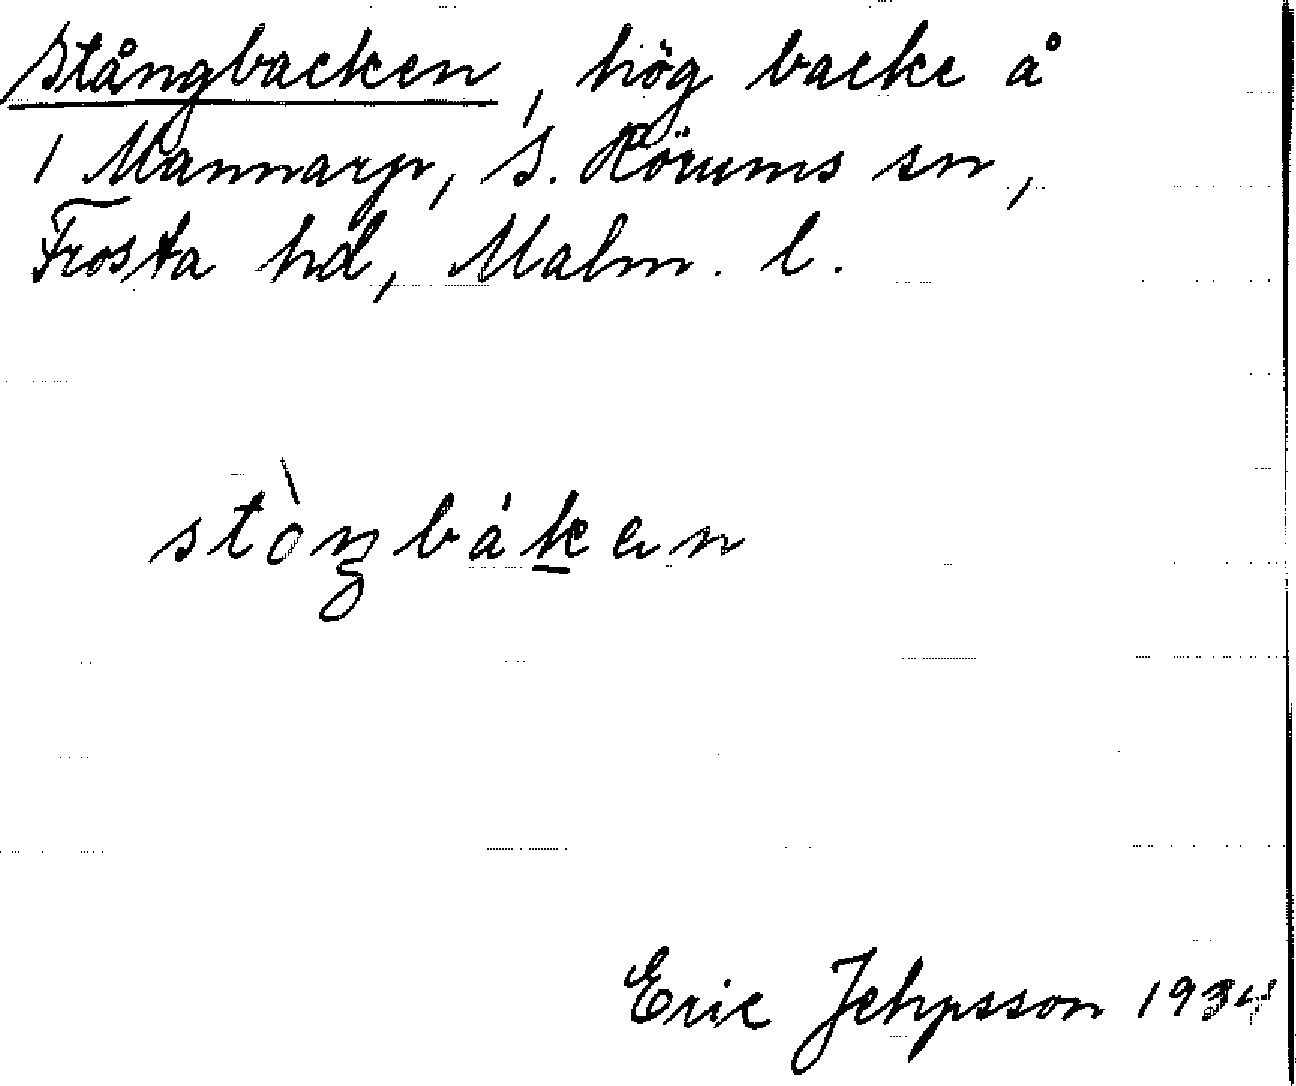 Stångbacken, hög backe å
1 Mannarp, S. Rörums sn,
Frosta hd, Malm. l.
stòŋbákæn
Eric Jehpsson 1934